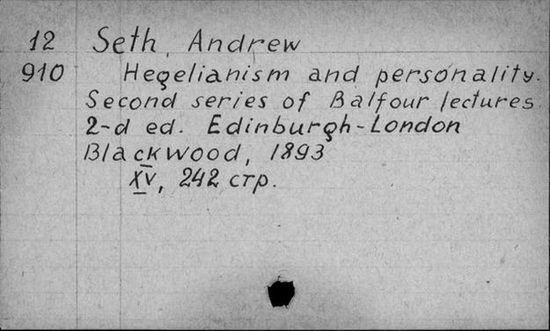 12 Seth, Andrew
910 Hegelianism and personality.
Second series of Balfour lectures
2-d ed. Edinburgh-London
Blackwood, 1893
XV, 242 стр.